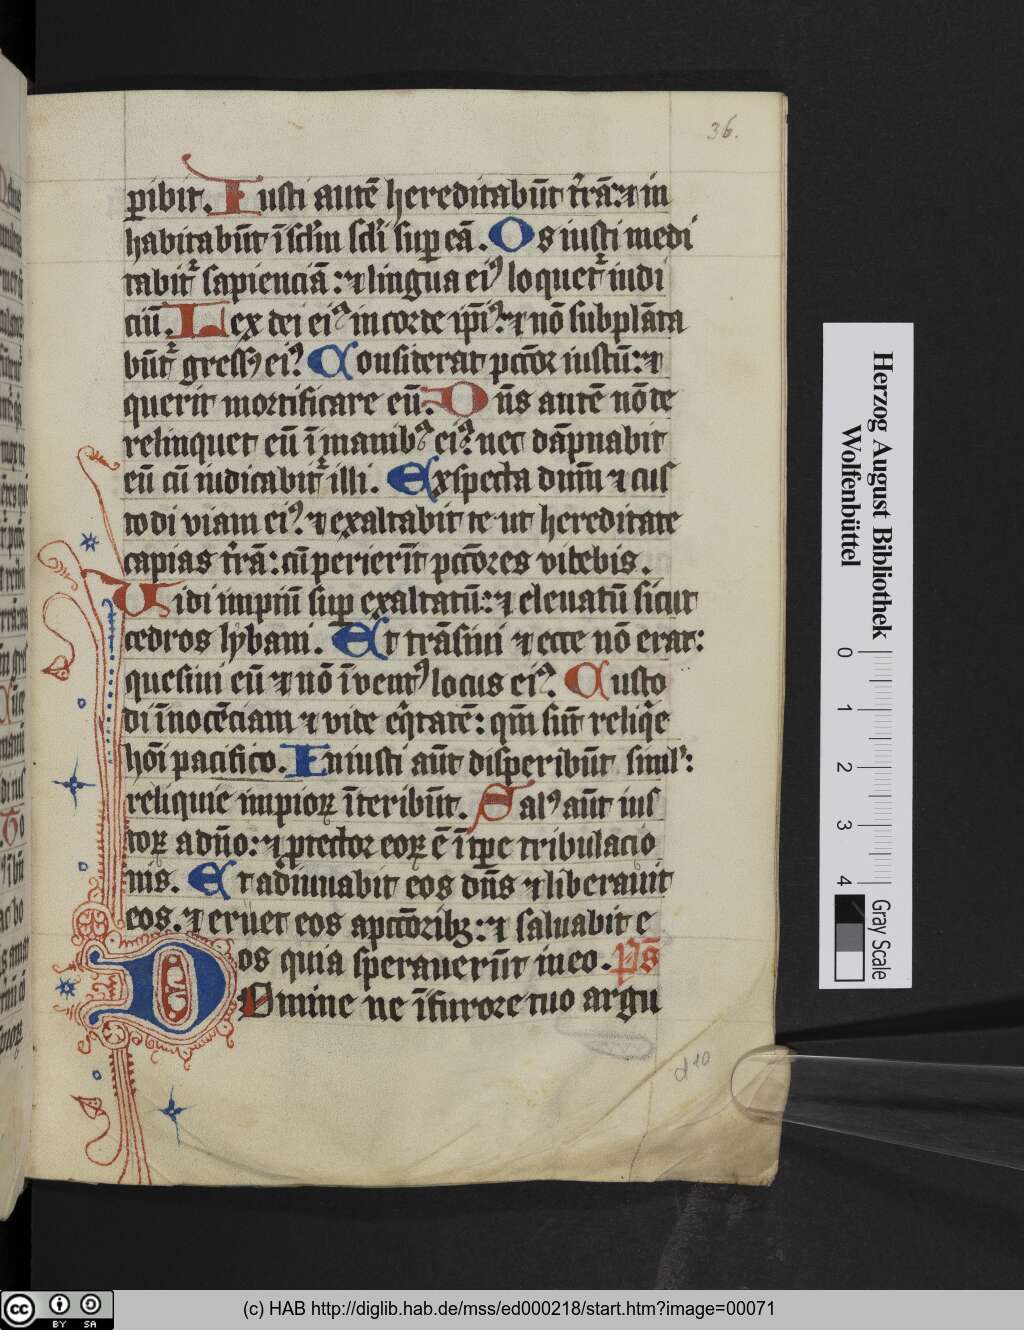 36.
ꝑibit. Iusti autē hereditabūt t̄rā: ⁊ in
habitabūt ī sc̄lm sc̄li suꝑ eā. Os iusti medi
tabit᷑ sapienciā: ⁊ lingua eiꝰ loquet᷑ iudi
ciū. Lex dei eiꝰ in corde ip̄iꝰ: ⁊ nō subplāta
būt᷑ gressꝰ eiꝰ. Considerat pcc̄or iustū: ⁊
querit mortificare eū. Dn̄s autē nō de
relinquet eū ī manibꝰ eiꝰ: nec dāpnabit
eū cū iudicabit᷑ illi. Exspecta dn̄m ⁊ cus
todi viam eiꝰ: ⁊ exaltabit te ut hereditate
capias t̄rā: cū perierīt pcc̄ores videbis.
Uidi impiū suꝑ exaltatū: ⁊ eleuatū sicut
cedros lybani. Et trāsiui ⁊ ecce nō erat:
quesiui eū ⁊ nō ī uentꝰ locus eiꝰ. Custo
di īnocēciam ⁊ vide eq̄tatē: qm̄ sūt reliq̄e
hoī pacifico. Iniusti aūt disperibūt simlʼ:
reliquie impioꝝ īteribūt. Salꝰ aūt ius
toꝝ a dn̄o: ⁊ ꝓtector eoꝝ ē ī tp̄e tribulacio
nis. Et adiuuabit eos dn̄s ⁊ liberauit
eos. ⁊ eruet eos a pcc̄oribꝫ: ⁊ saluabit e
os quia sperauerūt in eo. Ps̄
Domine ne ī furore tuo argu
d 10
Herzog August Bibliothek
Wolfenbüttel
0 1 2 3 4
Gray Scale
cc BY SA
(c) HAB http://diglib.hab.de/mss/ed000218/start.htm?image=00071